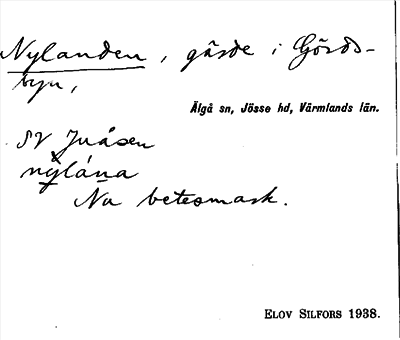 Nylanden, gärde i Gårds-
byn,
Älgå sn, Jösse hd, Värmlands län.
SV Inåsen
nylána
Nu betesmark.
ELOV SILFORS 1938.